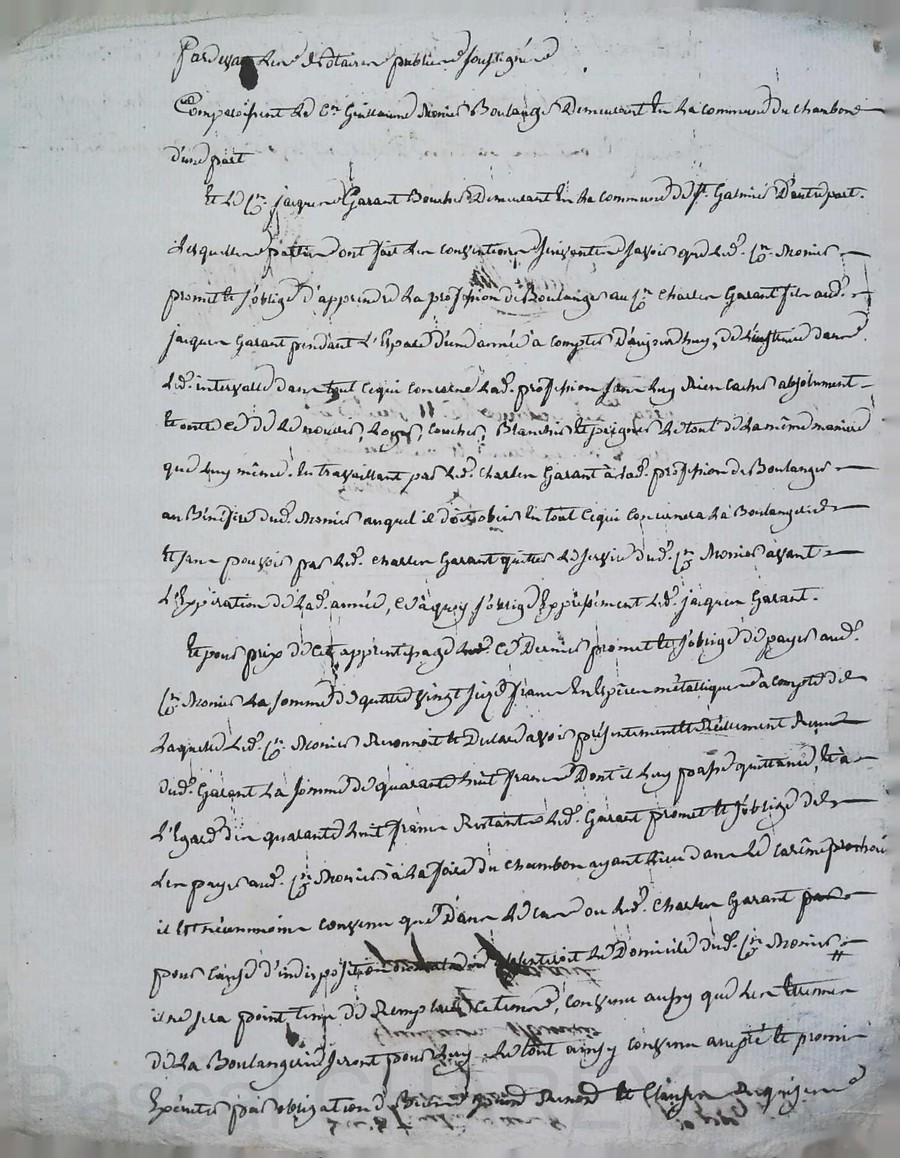 Pardevant les Notaires publics soussignés
Comparoissent Le Cen Guillaume Monier Boulanger Demeurant En La commune du chambon
d'une part
Et Le Cen jacques Garant Boucher Demeurant En La commune de St. Galmier D'autre part.
Lesquelles parties ont fait Les conventions suivantes savoir que Led. Cen Monier
promet et s'oblige d'apprendre La profession de Boulanger au Cen Charles Garant fils aud.
jacques Garant pendant L'Espace d'une année à compter D'aujourdhuy, de L'instruire dans
Led. intervalle dans tout ce qui concerne Lad. profession sans Luy Rien cacher absolument
Et outre ce de Le nourrir, Loger, coucher, Blanchir et soigner Le tout de La même maniere
que Luy même. En travaillant par Led. Charles Garant à Lad. profession de Boulanger
au Bénéfice dud. Monier auquel il doit obéir En tout ce qui concernera La Boulangerie
Et sans pouvoir par Led. Charles Garant quitter Le service dud. Cen Monier avant
L'Expiration de Lad. année, Ce à quoy s'oblige Expressément Led. jacques Garant.
Et pour prix de cet apprentissage ce Dernier promet et s'oblige de payer aud.
Cen Monier La somme de quatre vingt seize francs En Espèces métalliques à compte de
Laquelle Led. Cen Monier Reconnoit et Declare avoir présentement et Réellement Reçu
dud. Garant La somme de quarante huit francs Dont il Luy passe quittance, Et à
L'Egard des quarante huit francs Restants Led. Garant promet et s'oblige de
Les payer aud. Cen Monier à La foire du chambon ayant Lieu dans Le carême prochain
il Est néanmoins convenu que Dans Le cas où Led. Charles Garant
pour cause d'indisposition Le Domicile dud. Cen Monier
il ne sera point tenu de Remplacer Ce temps, convenu aussy que Les Etrennes
de La Boulangerie seront pour Luy Le tout ainsy convenu arrêté et promis
Exécuter par obligation de Biens Renond et Clauses Requises